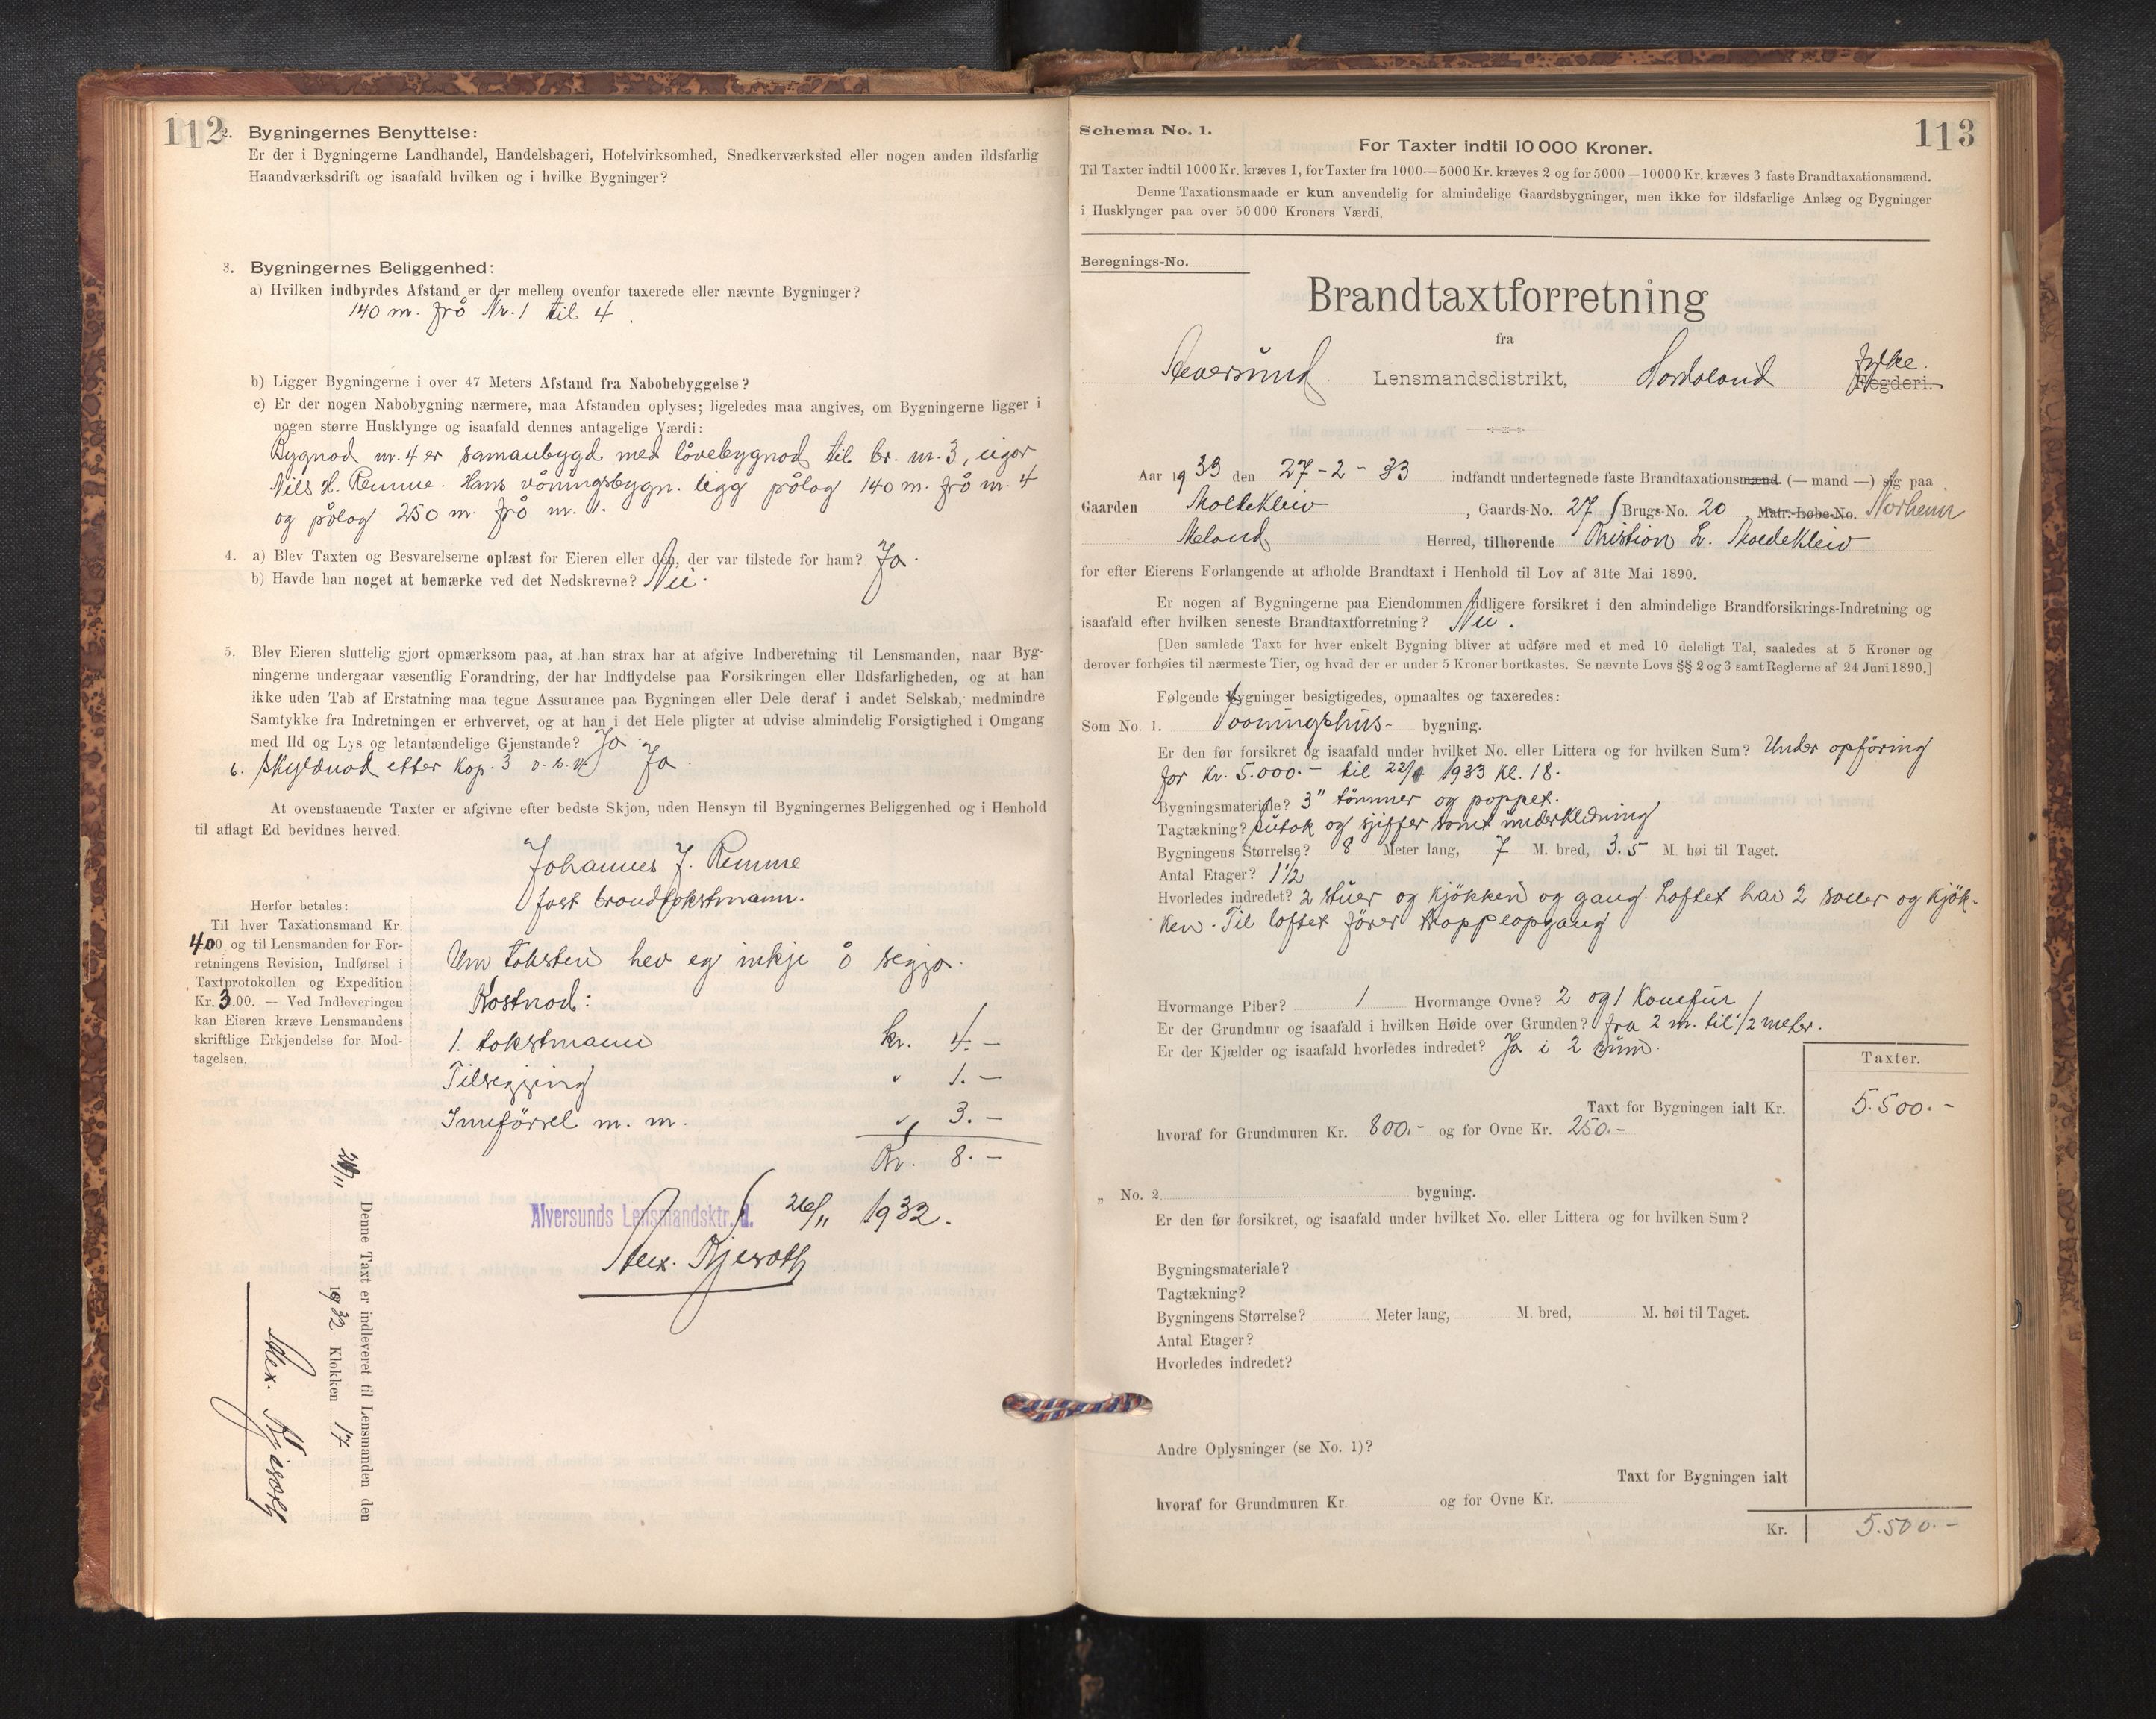 112
2. Bygningernes Benyttelse:
Er der i Bygningerne Landhandel, Handelsbageri, Hotelvirksomhed, Snedkerværksted eller nogen anden ildsfarlig
Haandværksdrift og isaafald hvilken og i hvilke Bygninger?
3. Bygningernes Beliggenhed:
a) Hvilken indbyrdes Afstand er der mellem ovenfor taxerede eller nævnte Bygninger?
140 m. frå Nr. 1 til 4.
b) Ligger Bygningerne i over 47 Meters Afstand fra Nabobebyggelse?
c) Er der nogen Nabobygning nærmere, maa Afstanden oplyses; ligeledes maa angives, om Bygningerne ligger i
nogen større Husklynge og isaafald dennes antagelige Værdi:
Bygnad nr. 4 er samanbygd med lövebygnad til br. nr. 3, eigar
Nils H. Remme. Hans våningsbygn. ligg pålag 140 m. frå nr. 4
og pålag 250 m. frå nr. 1.
4. a) Blev Taxten og Besvarelserne oplæst for Eieren eller den, der var tilstede for ham? Ja.
b) Havde han noget at bemærke ved det Nedskrevne? Nei.
5. Blev Eieren sluttelig gjort opmærksom paa, at han strax har at afgive Indberetning til Lensmanden, naar Byg-
ningerne undergaar væsentlig Forandring, der har Indflydelse paa Forsikringen eller Ildsfarligheden, og at han
ikke uden Tab af Erstatning maa tegne Assurance paa Bygningen eller Dele deraf i andet Selskab, medmindre
Samtykke fra Indretningen er erhvervet, og at han i det Hele pligter at udvise almindelig Forsigtighed i Omgang
med Ild og Lys og letantændelige Gjenstande? Ja.
6. Skyldnad etter Kap. 3 Ja.
At ovenstaaende Taxter er afgivne efter bedste Skjøn, uden Hensyn til Bygningernes Beliggenhed og i Henhold
til aflagt Ed bevidnes herved.
Johannes J. Remme
fast brandtakstmann.
Herfor betales:
Til hver Taxationsmand Kr.
4.00 og til Lensmanden for For-
retningens Revision, Indførsel i
Taxtprotokollen og Expedition
Kr. 3.00. — Ved Indleveringen
kan Eieren kræve Lensmandens
skriftlige Erkjendelse for Mod-
tagelsen.
Um taksten hev eg inkje å segja.
Kostnad:
1. takstmann kr. 4.-
Tilsegjing " 1.-
Innförsel m. m. " 3.-
Kr. 8.-
Alversunds Lensmandsktr. d. 26/11 1932.
Alex. Kjerath
Denne Taxt er indleveret til Lensmanden den
1932 Klokken 17
Alex. Kjerath
113
Schema No. 1.
For Taxter indtil 10 000 Kroner.
Til Taxter indtil 1000 Kr. kræves 1, for Taxter fra 1000—5000 Kr. kræves 2 og for 5000—10000 Kr. kræves 3 faste Brandtaxationsmænd.
Denne Taxationsmaade er kun anvendelig for almindelige Gaardsbygninger, men ikke for ildsfarlige Anlæg og Bygninger
i Husklynger paa over 50 000 Kroners Værdi.
Beregnings-No.
Brandtaxtforretning
fra
Alversund Lensmandsdistrikt, Hordaland Fogderi. fylke.
Aar 1933 den 27-2-33 indfandt undertegnede faste Brandtaxationsmænd (— mand —) sig paa
Gaarden Moldekleiv, Gaards-No. 27 / Brugs-No. 20 Matr.-Løbe-No. Norheim
Meland Herred, tilhørende Kristian L. Moldekleiv
for efter Eierens Forlangende at afholde Brandtaxt i Henhold til Lov af 31te Mai 1890.
Er nogen af Bygningerne paa Eiendommen tidligere forsikret i den almindelige Brandforsikrings-Indretning og
isaafald efter hvilken seneste Brandtaxtforretning? Nei.
[Den samlede Taxt for hver enkelt Bygning bliver at udføre med et med 10 deleligt Tal, saaledes at 5 Kroner og
derover forhøies til nærmeste Tier, og hvad der er under 5 Kroner bortkastes. Se nævnte Lovs §§ 2 og 3 samt Reglerne af 24 Juni 1890.]
Følgende Bygninger besigtigedes, opmaaltes og taxeredes:
Som No. 1. Vaaningshus- bygning.
Er den før forsikret og isaafald under hvilket No. eller Littera og for hvilken Sum? Under opföring
for Kr. 5.000.- til 1933 Kl. 18.
Bygningsmateriale? 3" tömmer og pappet.
Tagtækning? sutak og sjiffer samt underkledning
Bygningens Størrelse? 8 Meter lang, 7 M. bred, 3.5 M. høi til Taget.
Antal Etager? 1 1/2
Hvorledes indredet? 2 stuer og kjökken og gang. Loftet har 2 saler og kjök-
ken. Til loftet förer trappeopgang
Hvormange Piber? 1 Hvormange Ovne? 2 og 1 Komfur
Er der Grundmur og isaafald i hvilken Høide over Grunden? fra 2 m. til 1/2 meter.
Er der Kjælder og isaafald hvorledes indredet? Ja i 2 rum.
Taxter.
Taxt for Bygningen ialt Kr. 5.500.-
hvoraf for Grundmuren Kr. 800.- og for Ovne Kr. 250.-
„ No. 2 bygning.
Er den før forsikret, og isaafald under hvilket No. eller Littera og for hvilken Sum?
Bygningsmateriale?
Tagtækning?
Bygningens Størrelse? Meter lang, M. bred, M. høi til Taget.
Antal Etager?
Hvorledes indredet?
Andre Oplysninger (se No. 1)?
Taxt for Bygningen ialt
hvoraf for Grundmuren Kr. og for Ovne Kr.
Kr. 5.500.-